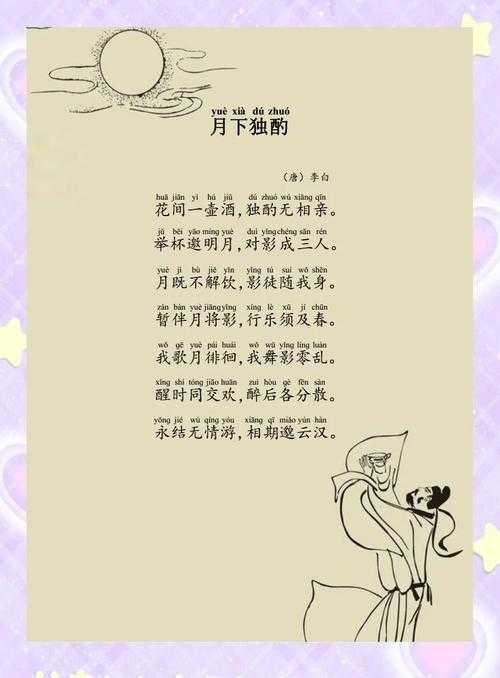 yuè xià dú zhuó
月下独酌
（唐）李白
huā jiān yì hú jiǔ dú zhuó wú xiāng qīn
花间一壶酒，独酌无相亲。
jǔ bēi yāo míng yuè duì yǐng chéng sān rén
举杯邀明月，对影成三人。
yuè jì bù jiě yǐn yǐng tú suí wǒ shēn
月既不解饮，影徒随我身。
zàn bàn yuè jiāng yǐng xíng lè xū jí chūn
暂伴月将影，行乐须及春。
wǒ gē yuè pái huái wǒ wǔ yǐng líng luàn
我歌月徘徊，我舞影零乱。
xǐng shí tóng jiāo huān zuì hòu gè fēn sàn
醒时同交欢，醉后各分散。
yǒng jié wú qíng yóu xiāng qī miǎo yún hàn
永结无情游，相期邈云汉。